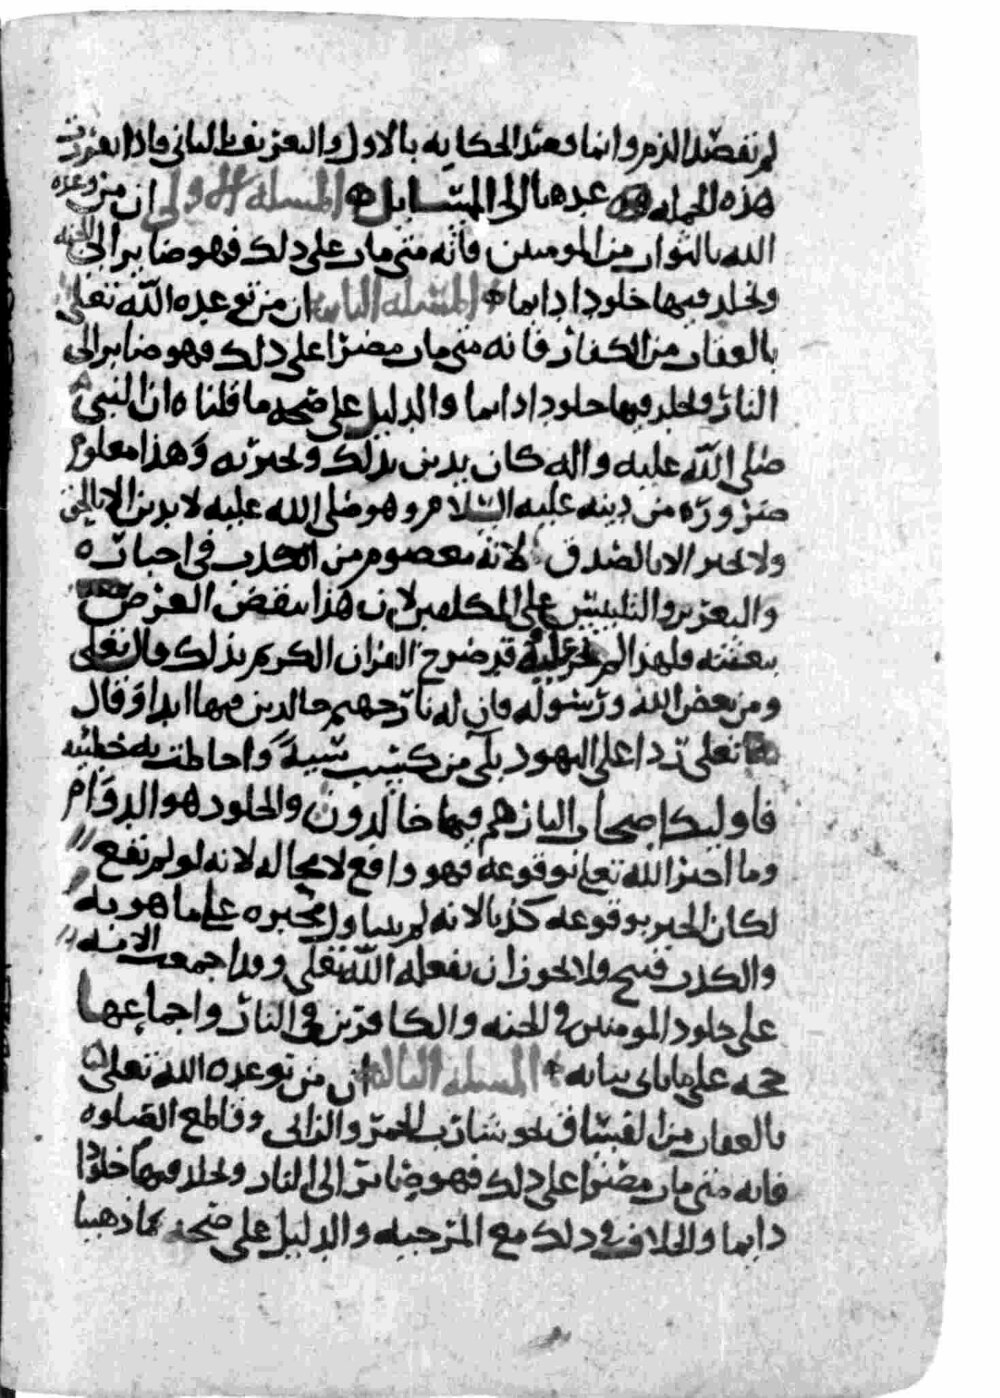 لم نقصد الذم وانما قصد الحكايه بالاول والتعريف بالثاني فاذا تقررت
هذه الجمله عدنا الى المسايل المسئله الاولى ان من وعده
الله بالثواب من المومنين فانه متى مات على ذلك فهو صاير الى الجنه
ومخلد فيها خلودا دايما المسئله الثانيه ان من توعده الله تعلى
بالعقاب من الكفار فانه متى مات مصرا على ذلك فهو صاير الى
النار ومخلد فيها خلودا دايما والدليل على صحه ما قلناه ان النبي
صلى الله عليه واله كان يدين بذلك ويخبر به وهذا معلوم
ضروره من دينه عليه السلام وهو صلى الله عليه لا يدين الا بالحق
ولا يخبر الا بالصدق لانه معصوم من الكذب في اخباره
والتغرير والتلبيس على المكلفين لان هذا ينقض الغرض
ببعثته ولهذا قد صرح القران الكريم بذلك قال تعلى
ومن يعص الله ورسوله فان له نار جهنم خالدين فيها ابدا وقال
تعلى ردا على اليهود بلى من كسب سيئة واحاطت به خطئته
فاوليك اصحاب النار هم فيها خالدون والخلود هو الدوام
وما اخبر الله تعلى بوقوعه فهو واقع لا محاله لانه لو لم يقع
لكان الخبر بوقوعه كذبا لانه لم يتناول مخبره على ما هو به
والكذب قبيح ولا يجوز ان يفعله الله تعلى وقد اجمعت الامه
على خلود المومنين في الجنه والكافرين في النار واجماعها
حجه على ما ياتي بيانه المسئله الثالثه ان من توعده الله تعلى
بالعقاب من الفساق نحو شارب الخمر والزاني وقاطع الصلوه
فانه متى مات مصرا على ذلك فهو صاير الى النار ومخلد فيها خلودا
دايما والخلاف في ذلك مع المرجيه والدليل على صحه ما ذهبنا